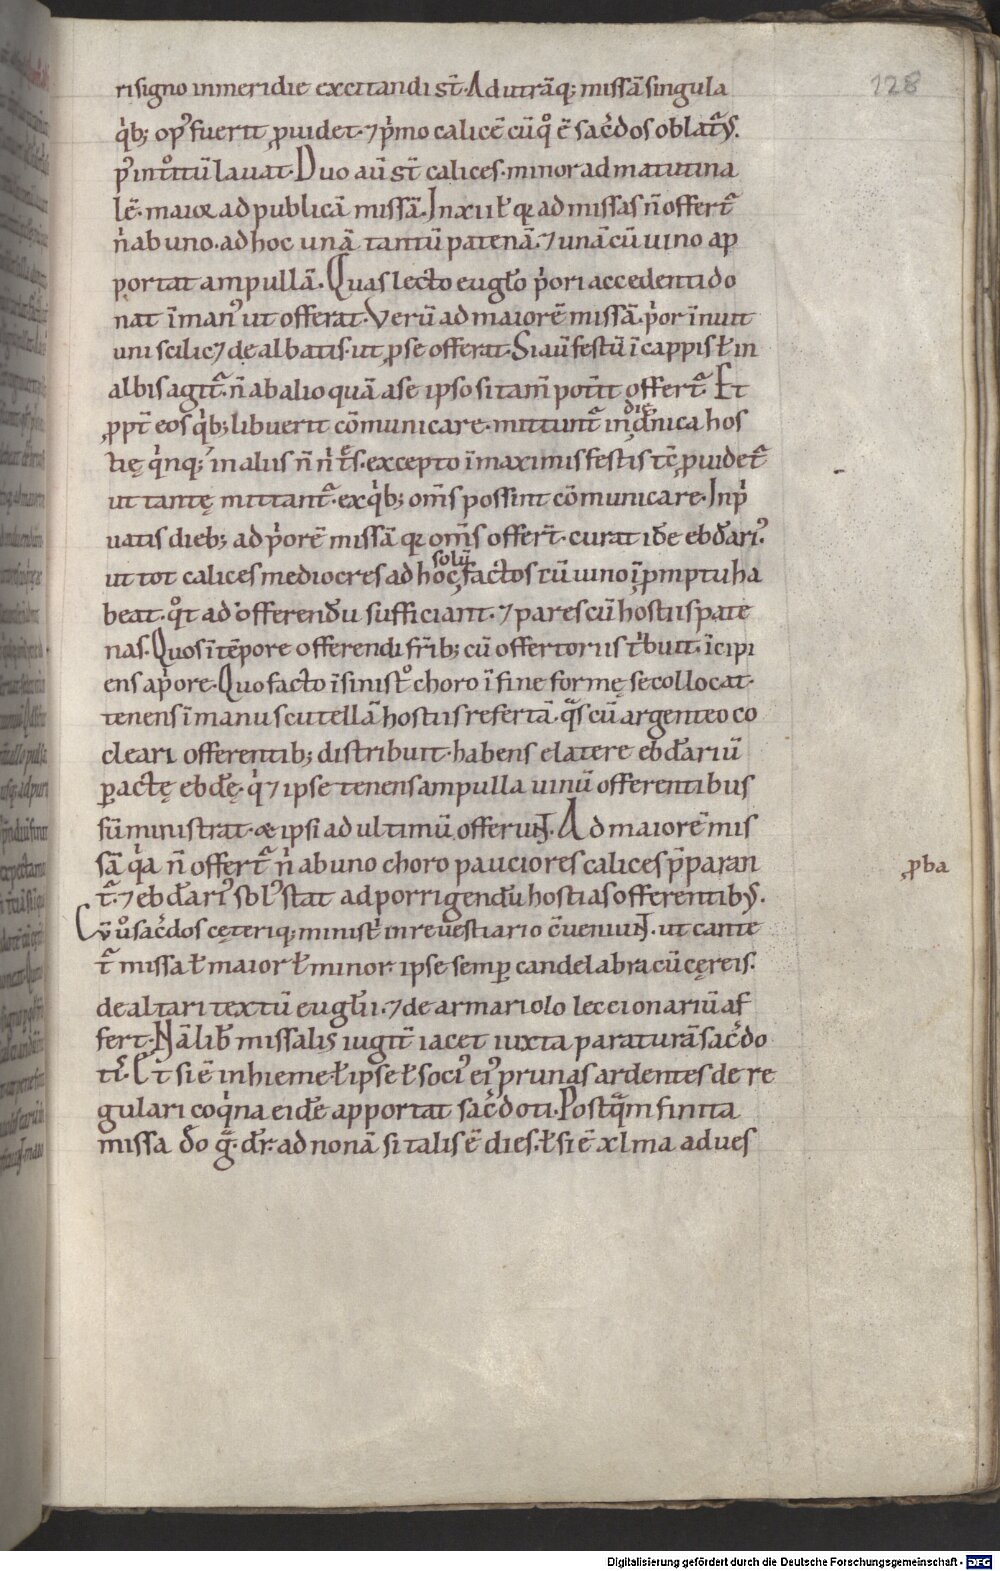 128
ri signo in meridie excitandi st̄. Ad utrāq; missā singula
q̇b; op᷒ fuerit ꝓuidet. ⁊ p̍mo calicē cū q̊ ē sac̄dos oblatur᷒.
p᷒ int̊itū lauat. Duo aū st̄ calices. minor ad matutina
lē. maior ad publicā missā. In xii ł qr ad missas n̄ offert᷑
n̍ ab uno. ad hoc unā tantū patenā. ⁊ unā cū uino ap
portat ampullā. Quas lecto eugl̄o p̍ori accedenti do
nat ī man᷒ ut offerat. Verū ad maiorē missā. p̍or īnuit
uni scilic⁊ de albatis. ut ꝓ se offerat. Si aū festū ī cappis ł in
albis agit᷑. n̄ ab alio quā a se ipso si tam̄ pot̍it offert᷑. Et
ꝓpt̄ eos q̍b; libuerit cōmunicare. mittunt᷑ in die dn̄ica hos
tię q̍nq; in aliis n̄ n̍ tres. excepto ī maximis festis tc̄ ꝓuidet᷑
ut tantę mittant᷑. ex q̍b; om̄s possint cōmunicare. In p̍
uatis dieb; ad p̍orē missā qr om̄s offert̄. curat idē ebđari᷒
ut tot calices mediocres ad hoc solū factos cū uino ī ꝓmptu ha
beat. q̊t ad offerendū sufficiant. ⁊ pares cū hostiis pate
nas. Quos ī tēpore offerendi fr̄ib; cū offertoriis t̍buit. īcipi
ens a p̍ore. Quo facto ī sinist̊ choro ī fine formę se collocat.
tenens ī manu scutellā hostiis refertā. qas cū argenteo co
cleari offerentib; distribuit. habens e latere ebđariū
ꝑactę ebđę. q̍ ⁊ ipse tenens ampulla uinū offerentibus
sūministrat. & ipsi ad ultimū offerunt. Ad maiorē mis
sā q̍a n̄ offert᷑ n̍ ab uno choro pauciores calices p̄paran
t᷑. ⁊ ebđari᷒ sol᷒ stat ad porrigendū hostias offerentib᷒.
Cū ů sac̄dos cęteriq; minist̍ in reuestiario c̄ueniunt. ut cante
t᷑ missa ł maior ł minor. ipse semꝑ candelabra cū cęreis.
de altari textū eugl̄ii. ⁊ de armariolo leccionariū af
fert. Nā lib̄ missalis iugit̄ iacet iuxta paraturā sac̄do
ti. Et si ē in hieme. ł ipse ł soci᷒ ei᷒ prunas ardentes de re
gulari coq̍na eidē apportat sac̄doti. Postqām finita
missa dō ga. dr̄. ad nonā si talis ē dies. ł si ē xlma ad ues
ꝓba
Digitalisierung gefördert durch die Deutsche Forschungsgemeinschaft - DFG